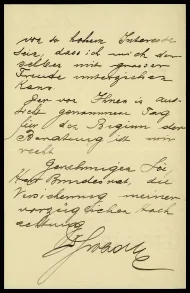 von so hohem Interesse
sein, dass ich mich der
selben mit grosser
Freude unterziehen
kann.
Der von Ihnen in Aus-
sicht genommene Tag
für den Beginn der
Beratung ist mir
recht.
Genehmigen Sie,
Herr Bundesrat, die
Versicherung meiner
vorzüglichen Hoch
achtung